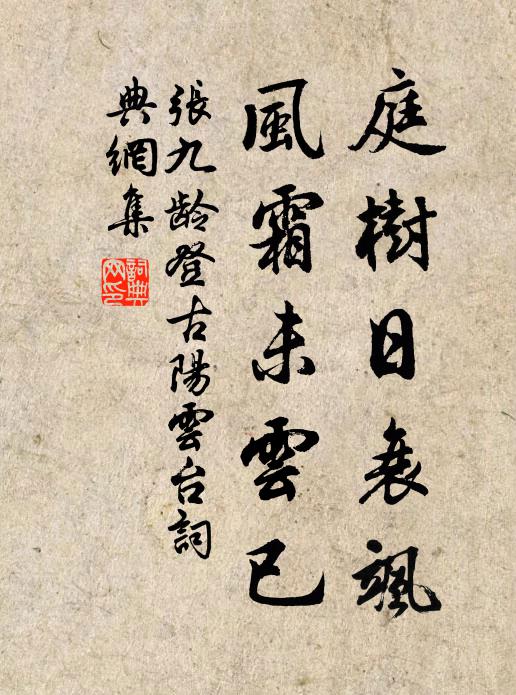 庭樹日衰颯
風霜未雲已
張九龄登古陽雲台詞
典網集
詞典
网印